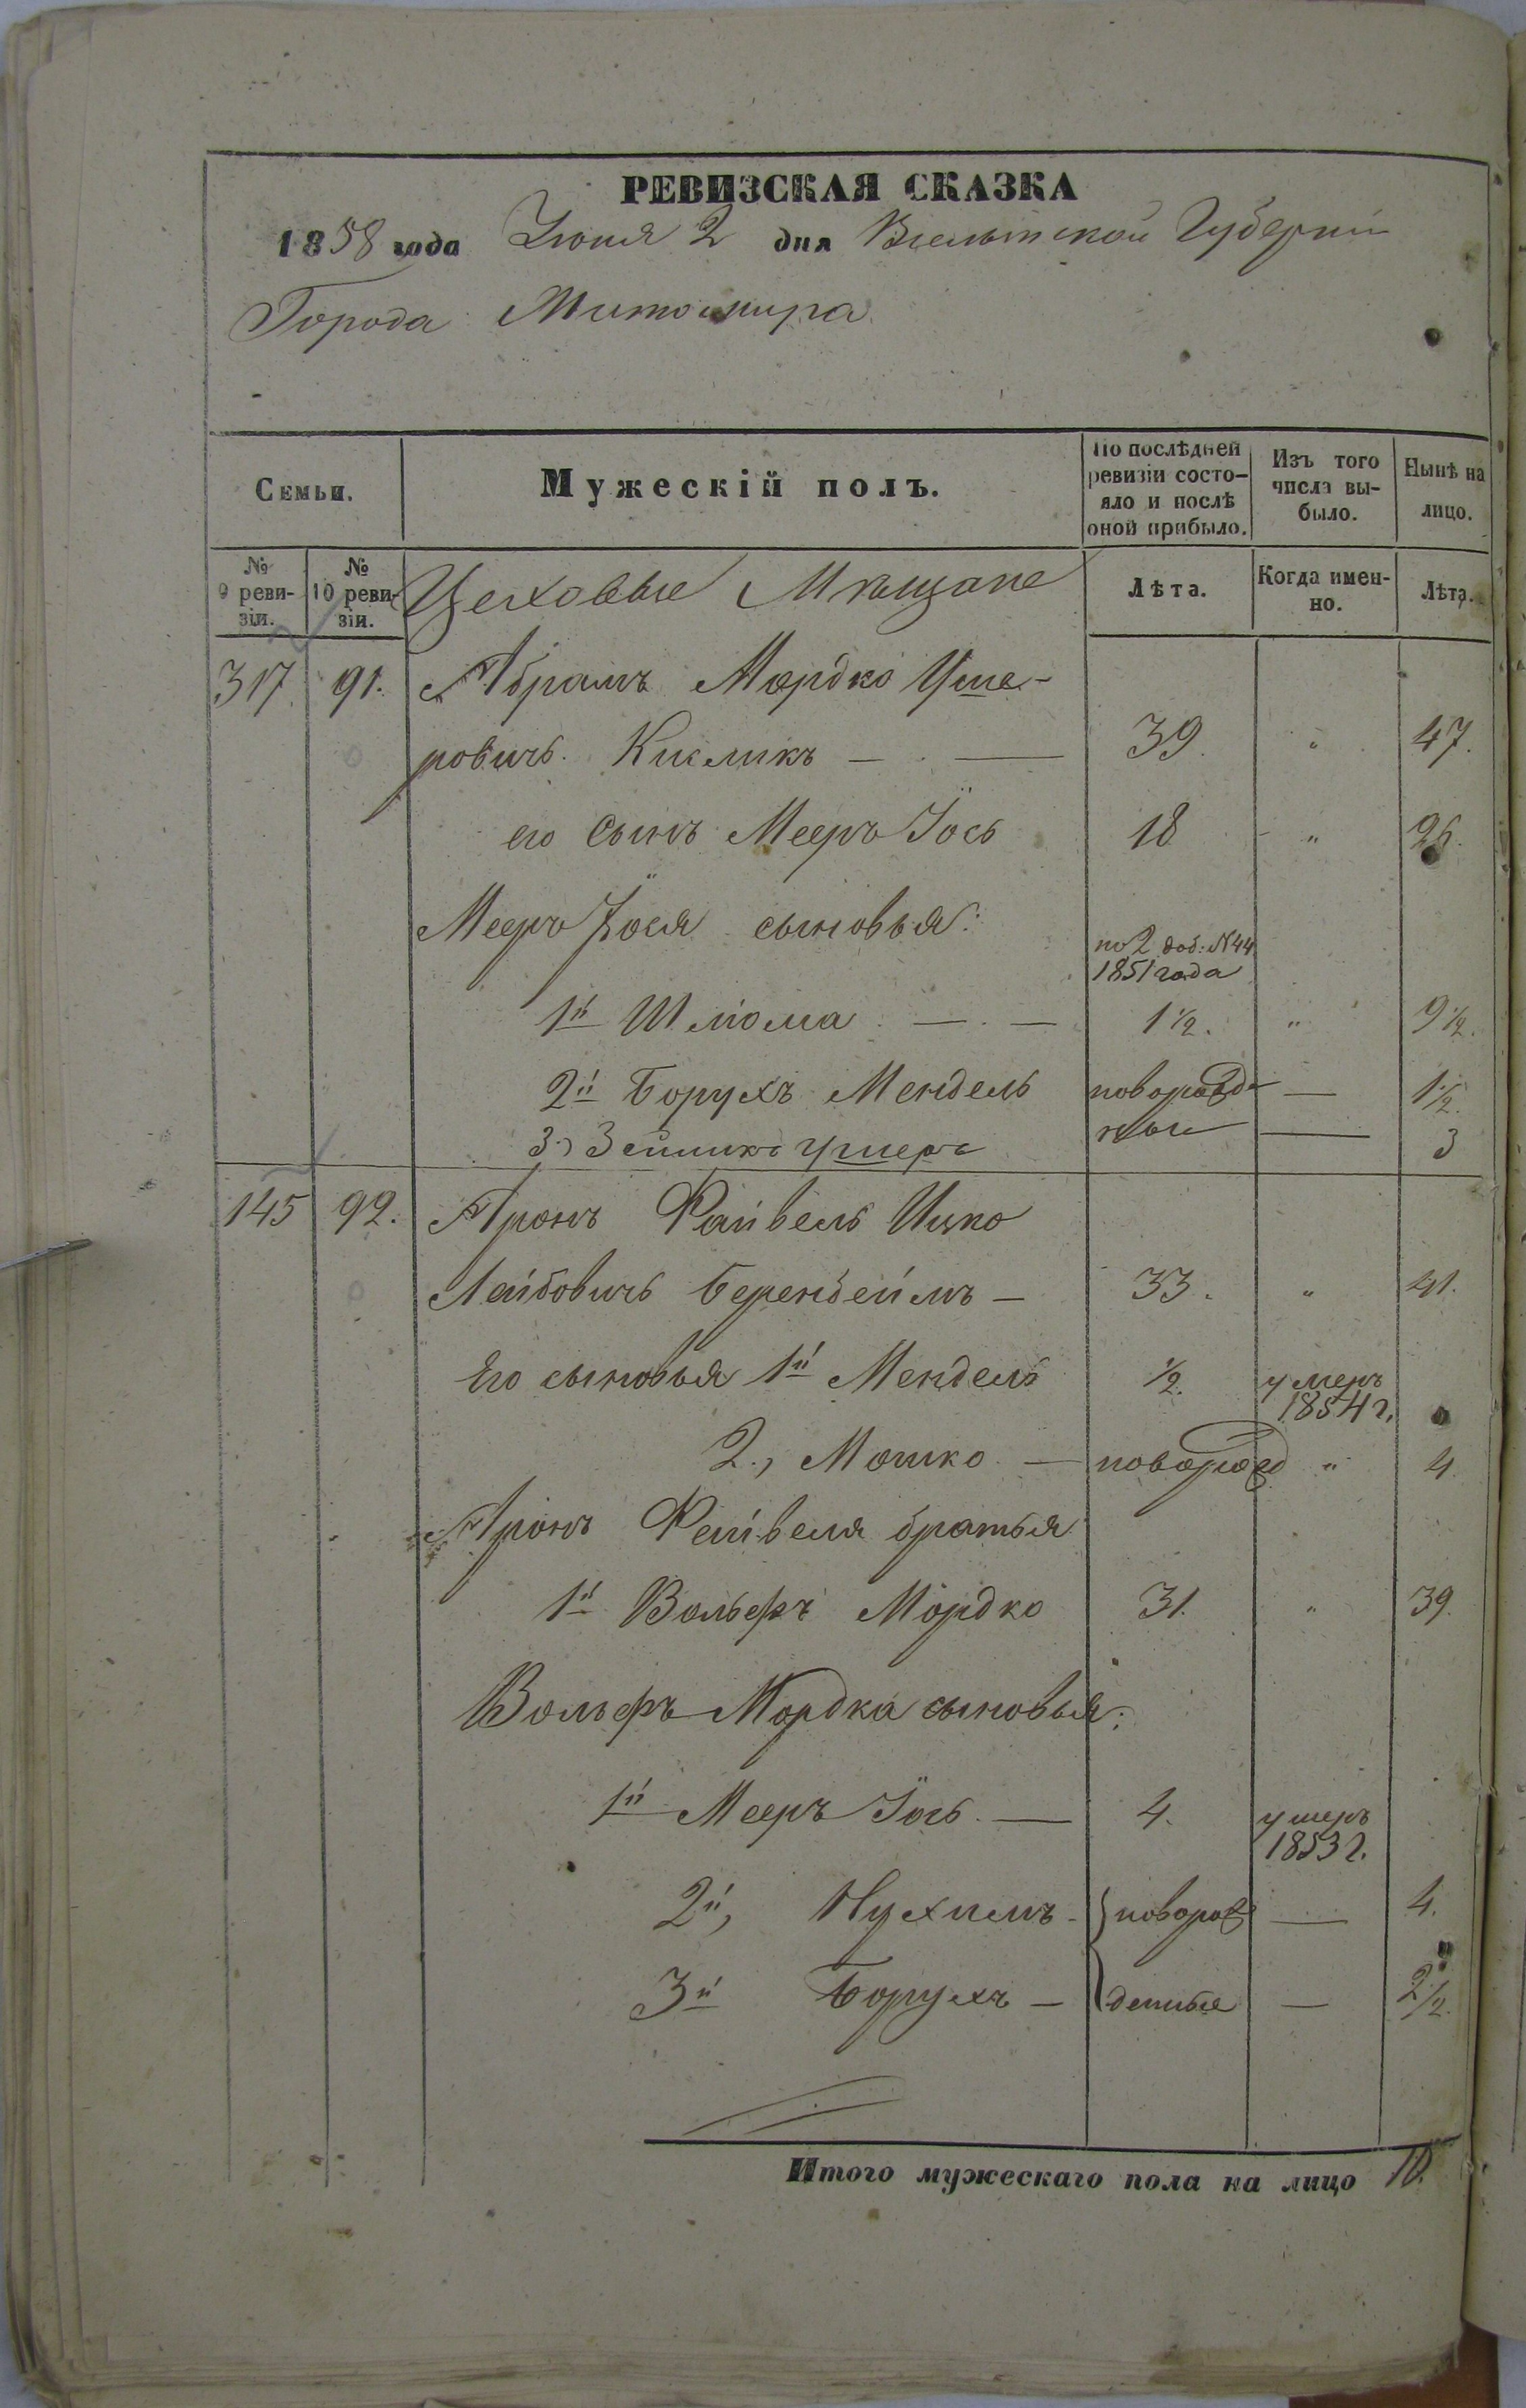 РЕВИЗСКАЯ СКАЗКА
1858 года Июня 2 дня Волынской Губерніи
Города Житомира
Семьи.
Мужескій полъ.
По послѣдней ревизіи состояло и послѣ оной прибыло.
Изъ того числа выбыло.
Нынѣ на лицо.
№ 9 ревизіи.
№ 10 ревизіи.
Цеховые Мѣщане
Лѣта.
Когда именно.
Лѣта.
317 91. Абрамъ Мордко Уше-
ровичъ 39. " 47.
его сынъ Мееръ Іось 18 " 26.
Мееръ Іося сыновья:
по 2 доб: №44
1851 года
1й Шлiома — — 1 1/2. " 9 1/2.
2й Борухъ Мендель новорожд- — 1 1/2.
3) Зейликъ Ушеръ ные — 3
145 92. Аронъ Файвель Ицко
Лейбовичъ 33. " 41.
Его сыновья 1й Мендель 1/2. умеръ 1854 г.
2., Мошко — новорожд " 4.
Аронъ Фейвеля братья
1й Вольфъ Мордко 31. " 39.
Вольфъ Мордка сыновья:
1й Мееръ Іось — 4. умеръ 1853 г.
2й, Нухимъ - } новорож — 4.
3й Борухъ — денные — 2 1/2.
Итого мужескаго пола на лицо 10.